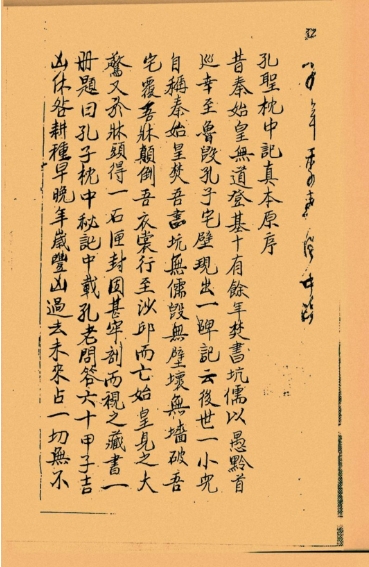 孔聖枕中記真本原序
昔秦始皇無道登基十有餘年焚書坑儒以愚黔首
巡幸至魯毀孔子宅壁現出一碑記云後世一小兒
自稱秦始皇焚吾書坑無儒毀無壁壞無墻破吾
宅覆吾牀顛倒吾衣裳行至沙邱而亡始皇見之大
驚又於牀頭得一石匣封固甚牢剖而視之藏書一
冊題曰孔子枕中秘記中載孔老問答六十甲子吉
凶休咎耕種早晚年歲豐凶過去未來占一切無不